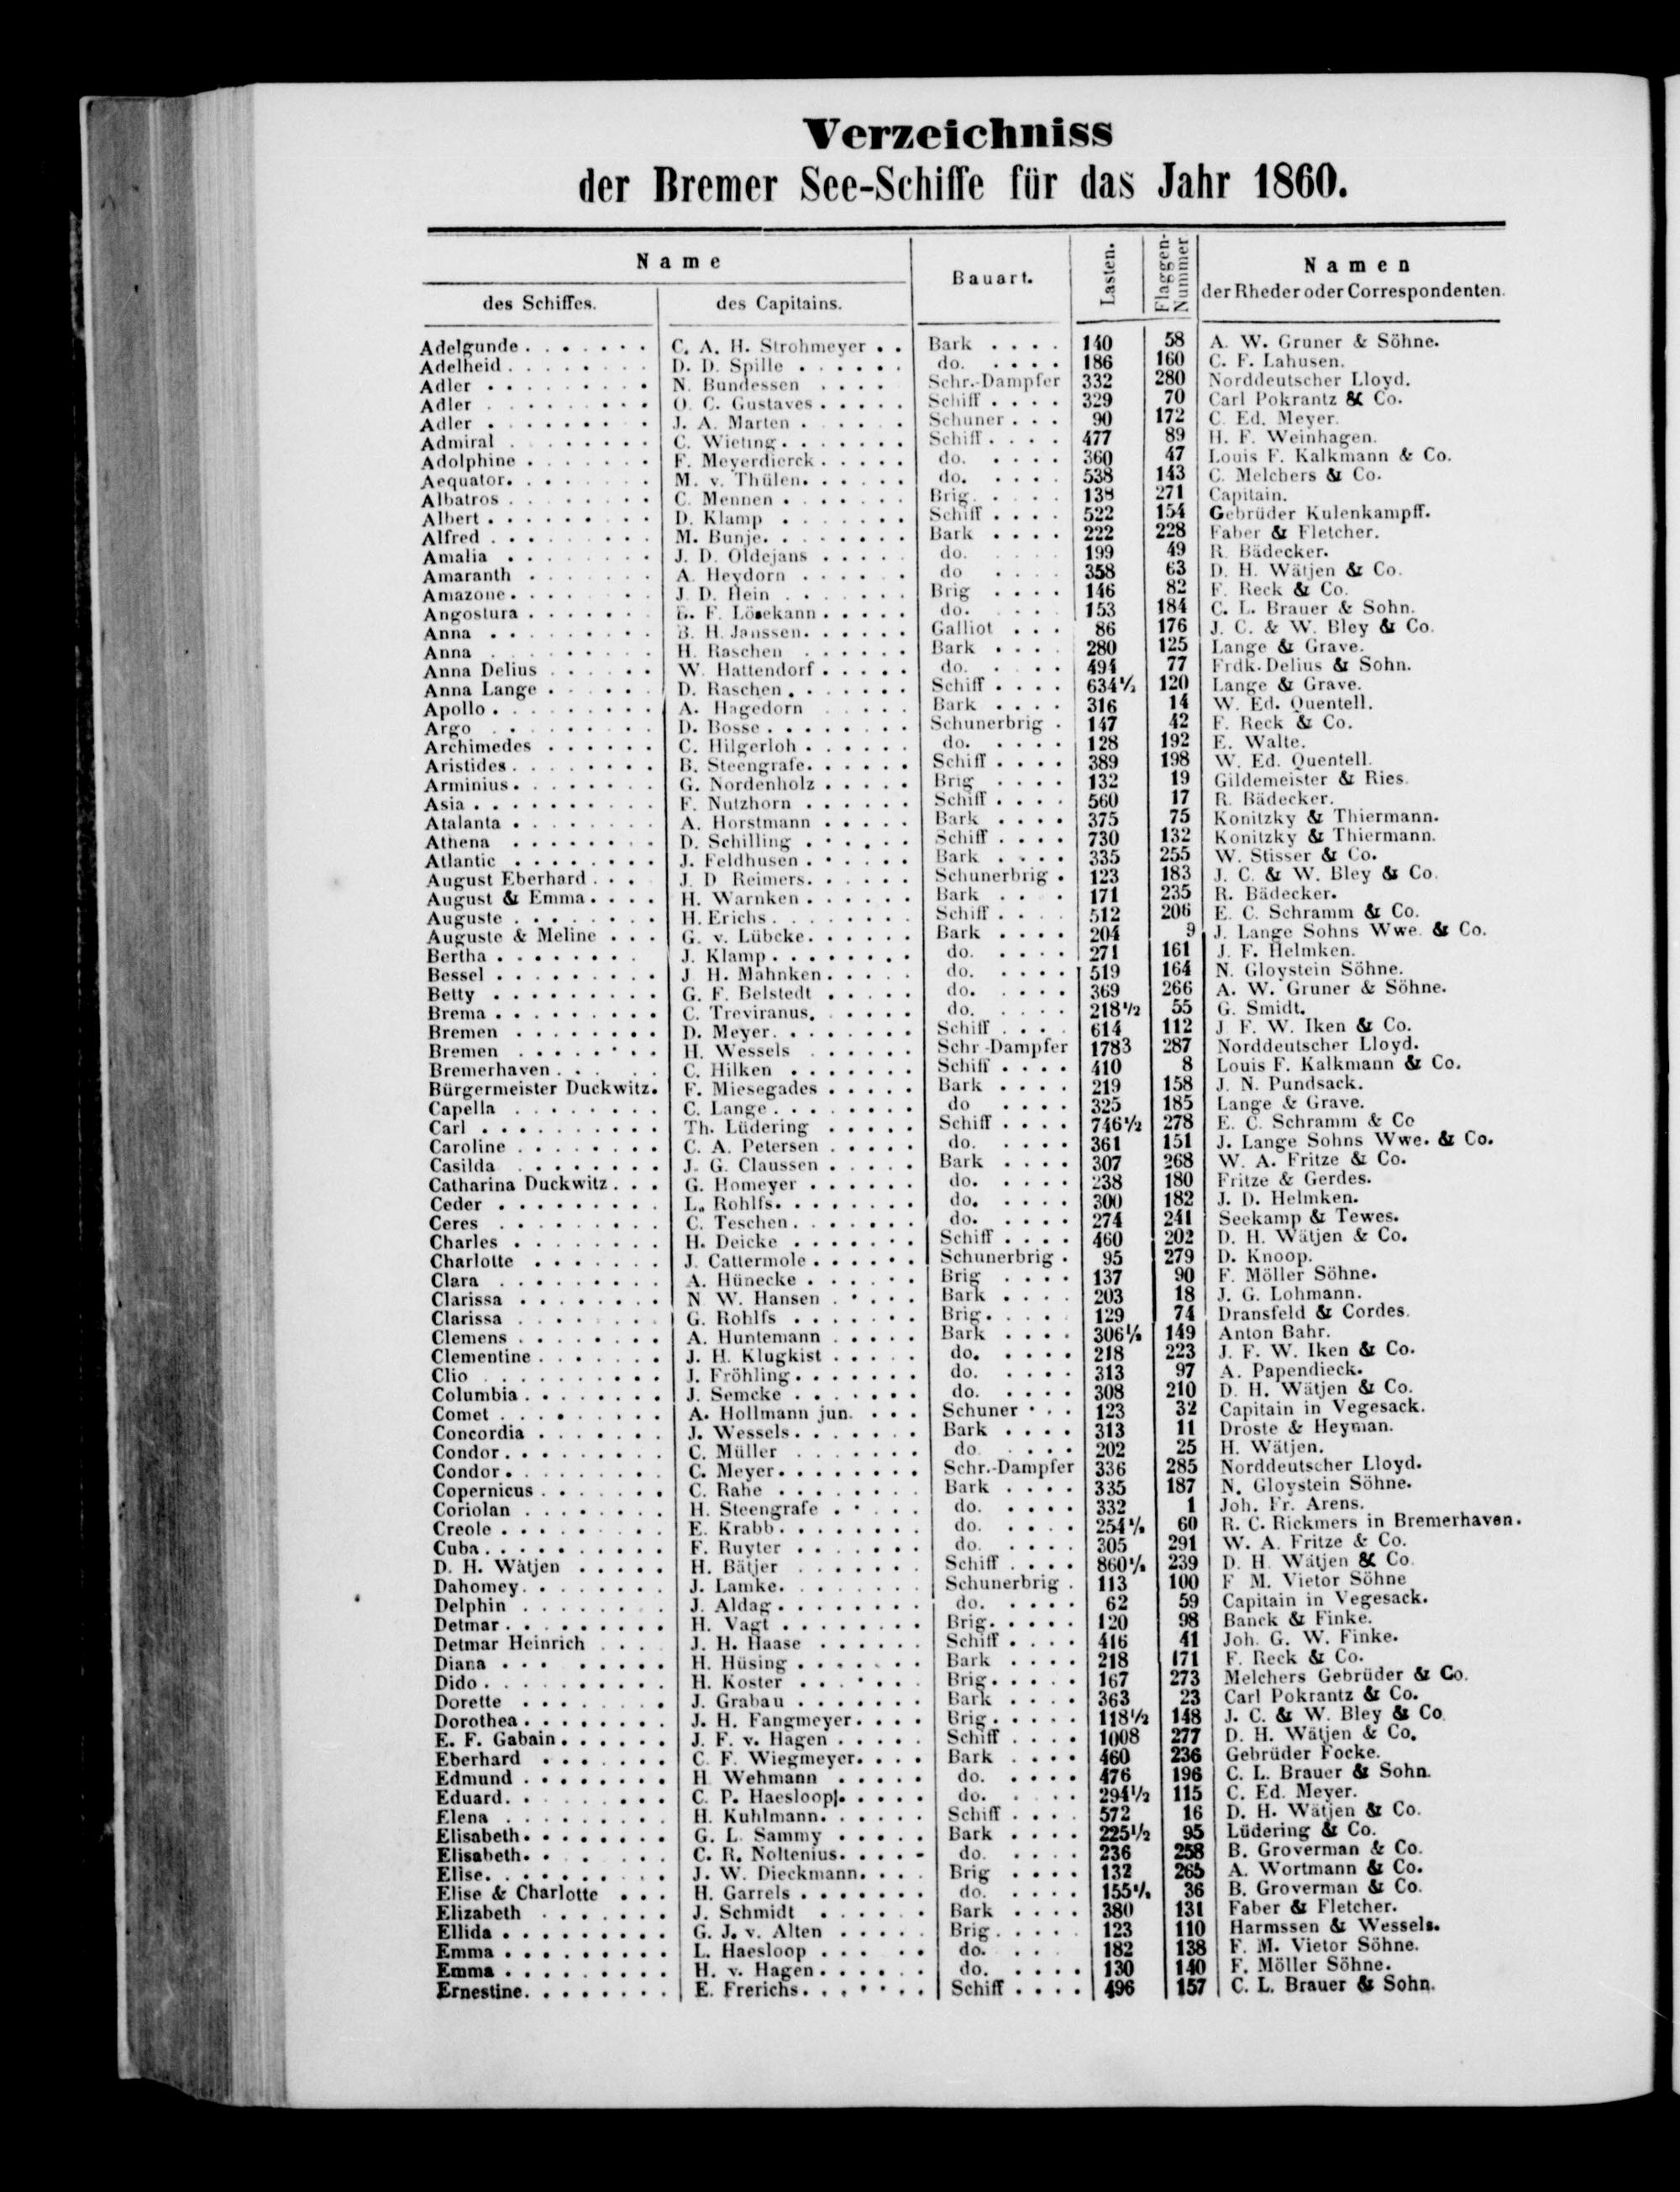 Verzeichniss
der Bremer See-Schiffe für das Jahr 1860.
Name Bauart. Lasten. Flaggen-Nummer Namen der Rheder oder Correspondenten.
des Schiffes. des Capitains.
Adelgunde. . . . . . . C. A. H. Strohmeyer . . Bark . . . . 140 58 A. W. Gruner & Söhne.
Adelheid . . . . . . . . D. D. Spille . . . . . . do. . . . . 186 160 C. F. Lahusen.
Adler . . . . . . . . . N. Bundessen . . . . Schr.-Dampfer 332 280 Norddeutscher Lloyd.
Adler . . . . . . . . . O. C. Gustaves . . . . . Schiff . . . . 329 70 Carl Pokrantz & Co.
Adler . . . . . . . . . J. A. Marten . . . . . . Schuner . . . 90 172 C. Ed. Meyer.
Admiral . . . . . . . . C. Wieting . . . . . . . Schiff . . . . 477 89 H. F. Weinhagen.
Adolphine . . . . . . . F. Meyerdierck . . . . . do. . . . . 360 47 Louis F. Kalkmann & Co.
Aequator. . . . . . . . M. v. Thülen. . . . . . do. . . . . 538 143 C. Melchers & Co.
Albatros . . . . . . . . C. Mennen . . . . . . . Brig. . . . . 138 271 Capitain.
Albert . . . . . . . . . D. Klamp . . . . . . . Schiff . . . . 522 154 Gebrüder Kulenkampff.
Alfred . . . . . . . . . M. Bunje. . . . . . . . Bark . . . . 222 228 Faber & Fletcher.
Amalia . . . . . . . . J. D. Oldejans . . . . . do. . . . . 199 49 R. Bädecker.
Amaranth . . . . . . . A. Heydorn . . . . . . do . . . . 358 63 D. H. Wätjen & Co.
Amazone . . . . . . . . J. D. Hein . . . . . . . Brig . . . . 146 82 F. Reck & Co.
Angostura . . . . . . . F. Lösekann . . . . . do. . . . . 153 184 C. L. Brauer & Sohn.
Anna . . . . . . . . . B. H. Janssen. . . . . . Galliot . . . 86 176 J. C. & W. Bley & Co.
Anna . . . . . . . . . H. Raschen . . . . . . Bark . . . . 280 125 Lange & Grave.
Anna Delius . . . . . . W. Hattendorf . . . . . do. . . . . 494 77 Frdk. Delius & Sohn.
Anna Lange . . . . . . D. Raschen . . . . . . . Schiff . . . . 634½ 120 Lange & Grave.
Apollo . . . . . . . . . A. Hagedorn . . . . . Bark . . . . 316 14 W. Ed. Quentell.
Argo . . . . . . . . . D. Bosse . . . . . . . . Schunerbrig . 147 42 F. Reck & Co.
Archimedes . . . . . . C. Hilgerloh . . . . . . do. . . . . 128 192 E. Walte.
Aristides . . . . . . . . B. Steengrafe. . . . . . Schiff . . . . 389 198 W. Ed. Quentell.
Arminius . . . . . . . . G. Nordenholz . . . . . Brig . . . . 132 19 Gildemeister & Ries.
Asia . . . . . . . . . . F. Nutzhorn . . . . . . Schiff . . . . 560 17 R. Bädecker.
Atalanta . . . . . . . . A. Horstmann . . . . . Bark . . . . 375 75 Konitzky & Thiermann.
Athena . . . . . . . . D. Schilling . . . . . . Schiff . . . . 730 132 Konitzky & Thiermann.
Atlantic . . . . . . . . J. Feldhusen . . . . . . Bark . . . . 335 255 W. Stisser & Co.
August Eberhard . . . J. D Reimers. . . . . . Schunerbrig . 123 183 J. C. & W. Bley & Co.
August & Emma . . . . H. Warnken . . . . . . Bark . . . . 171 235 R. Bädecker.
Auguste . . . . . . . . H. Erichs . . . . . . . . Schiff . . . . 512 206 E. C. Schramm & Co.
Auguste & Meline . . . G. v. Lübcke. . . . . . Bark . . . . 204 9 J. Lange Sohns Wwe & Co.
Bertha . . . . . . . . J. Klamp . . . . . . . . do. . . . . 271 161 J. F. Helmken.
Bessel . . . . . . . . . J H. Mahnken . . . . . do. . . . . 519 164 N. Gloystein Söhne.
Betty . . . . . . . . . G. F. Belstedt . . . . . do. . . . . 369 266 A. W. Gruner & Söhne.
Brema . . . . . . . . . C. Treviranus. . . . . . do. . . . . 218½ 55 G. Smidt.
Bremen . . . . . . . . D. Meyer. . . . . . . . Schiff . . . . 614 112 J F. W. Iken & Co.
Bremen . . . . . . . . H. Wessels . . . . . . Schr-Dampfer 1783 287 Norddeutscher Lloyd.
Bremerhaven . . . . . C. Hilken . . . . . . . Schiff . . . . 410 8 Louis F. Kalkmann & Co.
Bürgermeister Duckwitz. F. Miesegades . . . . . Bark . . . . 219 158 J. N. Pundsack.
Capella . . . . . . . . C. Lange . . . . . . . . do . . . . 325 185 Lange & Grave.
Carl . . . . . . . . . . Th. Lüdering . . . . . Schiff . . . . 746½ 278 E. C. Schramm & Co
Caroline . . . . . . . . C. A. Petersen . . . . . do. . . . . 361 151 J. Lange Sohns Wwe. & Co.
Casilda . . . . . . . . J. G. Claussen . . . . . Bark . . . . 307 268 W. A. Fritze & Co.
Catharina Duckwitz . . . G. Homeyer . . . . . . do. . . . . 238 180 Fritze & Gerdes.
Ceder . . . . . . . . . L. Rohlfs. . . . . . . . do. . . . . 300 182 J. D. Helmken.
Ceres . . . . . . . . . C. Teschen . . . . . . . do. . . . . 274 241 Seekamp & Tewes.
Charles . . . . . . . . H. Deicke . . . . . . . Schiff . . . . 460 202 D. H. Wätjen & Co.
Charlotte . . . . . . . J. Cattermole . . . . . . Schunerbrig . 95 279 D. Knoop.
Clara . . . . . . . . . A. Hünecke . . . . . . Brig . . . . 137 90 F. Möller Söhne.
Clarissa . . . . . . . . N W. Hansen . . . . . Bark . . . . 203 18 J. G. Lohmann.
Clarissa . . . . . . . . G. Rohlfs . . . . . . . Brig. . . . . 129 74 Dransfeld & Cordes.
Clemens . . . . . . . . A. Huntemann . . . . . Bark . . . . 306½ 149 Anton Bahr.
Clementine . . . . . . . J. H. Klugkist . . . . . do. . . . . 218 223 J. F. W. Iken & Co.
Clio . . . . . . . . . . J. Fröhling . . . . . . . do. . . . . 313 97 A. Papendieck.
Columbia . . . . . . . . J. Semcke . . . . . . . do. . . . . 308 210 D. H. Wätjen & Co.
Comet . . . . . . . . . A. Hollmann jun. . . . Schuner . . . 123 32 Capitain in Vegesack.
Concordia . . . . . . . J. Wessels . . . . . . . Bark . . . . 313 11 Droste & Heyman.
Condor . . . . . . . . . C. Müller . . . . . . . do . . . . 202 25 H. Wätjen.
Condor . . . . . . . . . C. Meyer . . . . . . . . Schr.-Dampfer 336 285 Norddeutscher Lloyd.
Copernicus . . . . . . . C. Rahe . . . . . . . . Bark . . . . 335 187 N. Gloystein Söhne.
Coriolan . . . . . . . . H. Steengrafe . . . . . do. . . . . 332 1 Joh. Fr. Arens.
Creole . . . . . . . . . E. Krabb . . . . . . . . do. . . . . 254½ 60 R. C. Rickmers in Bremerhaven.
Cuba . . . . . . . . . . F. Ruyter . . . . . . . do. . . . . 305 291 W. A. Fritze & Co.
D. H. Wätjen . . . . . H. Bätjer . . . . . . . Schiff . . . . 860½ 239 D. H. Wätjen & Co
Dahomey. . . . . . . . J. Lamke. . . . . . . . Schunerbrig . 113 100 F M. Vietor Söhne
Delphin . . . . . . . . J. Aldag . . . . . . . . do. . . . . 62 59 Capitain in Vegesack.
Detmar . . . . . . . . . H. Vagt . . . . . . . . Brig. . . . . 120 98 Banck & Finke.
Detmar Heinrich . . . . J. H. Haase . . . . . . Schiff . . . . 416 41 Joh. G. W. Finke.
Diana . . . . . . . . H. Hüsing . . . . . . . Bark . . . . 218 171 F. Reck & Co.
Dido . . . . . . . . . . H. Koster . . . . . . . Brig. . . . . 167 273 Melchers Gebrüder & Co.
Dorette . . . . . . . . J. Grabau . . . . . . . Bark . . . . 363 23 Carl Pokrantz & Co.
Dorothea . . . . . . . . J. H. Fangmeyer . . . . Brig. . . . . 118½ 148 J. C. & W. Bley & Co
E. F. Gabain . . . . . . J. F. v. Hagen . . . . . Schiff . . . . 1008 277 D. H. Wätjen & Co.
Eberhard . . . . . . . C. F. Wiegmeyer. . . . Bark . . . . 460 236 Gebrüder Focke.
Edmund . . . . . . . . H Wehmann . . . . . do. . . . . 476 196 C. L. Brauer & Sohn.
Eduard. . . . . . . . . C. P. Haesloop. . . . . do. . . . . 294½ 115 C. Ed. Meyer.
Elena . . . . . . . . . H. Kuhlmann. . . . . . Schiff . . . . 572 16 D. H. Wätjen & Co.
Elisabeth. . . . . . . . G. L. Sammy . . . . . Bark . . . . 225½ 95 Lüdering & Co.
Elisabeth. . . . . . C. R. Noltenius. . . . . do. . . . . 236 258 B. Groverman & Co.
Elise. . . . . . . . . . J. W. Dieckmann. . . . Brig . . . . 132 265 A. Wortmann & Co.
Elise & Charlotte . . . H. Garrels . . . . . . . do. . . . . 155½ 36 B. Groverman & Co.
Elizabeth . . . . . . . J. Schmidt . . . . . . Bark . . . . 380 131 Faber & Fletcher.
Ellida . . . . . . . . . G. J. v. Alten . . . . . Brig. . . . . 123 110 Harmssen & Wessels.
Emma . . . . . . . . . L. Haesloop . . . . . do. . . . 182 138 F. M. Vietor Söhne.
Emma . . . . . . . . . H. v. Hagen . . . . . . do. . . . . 130 140 F. Möller Söhne.
Ernestine. . . . . . . . E. Frerichs. . . . . . . Schiff . . . . 496 157 C. L. Brauer & Sohn.